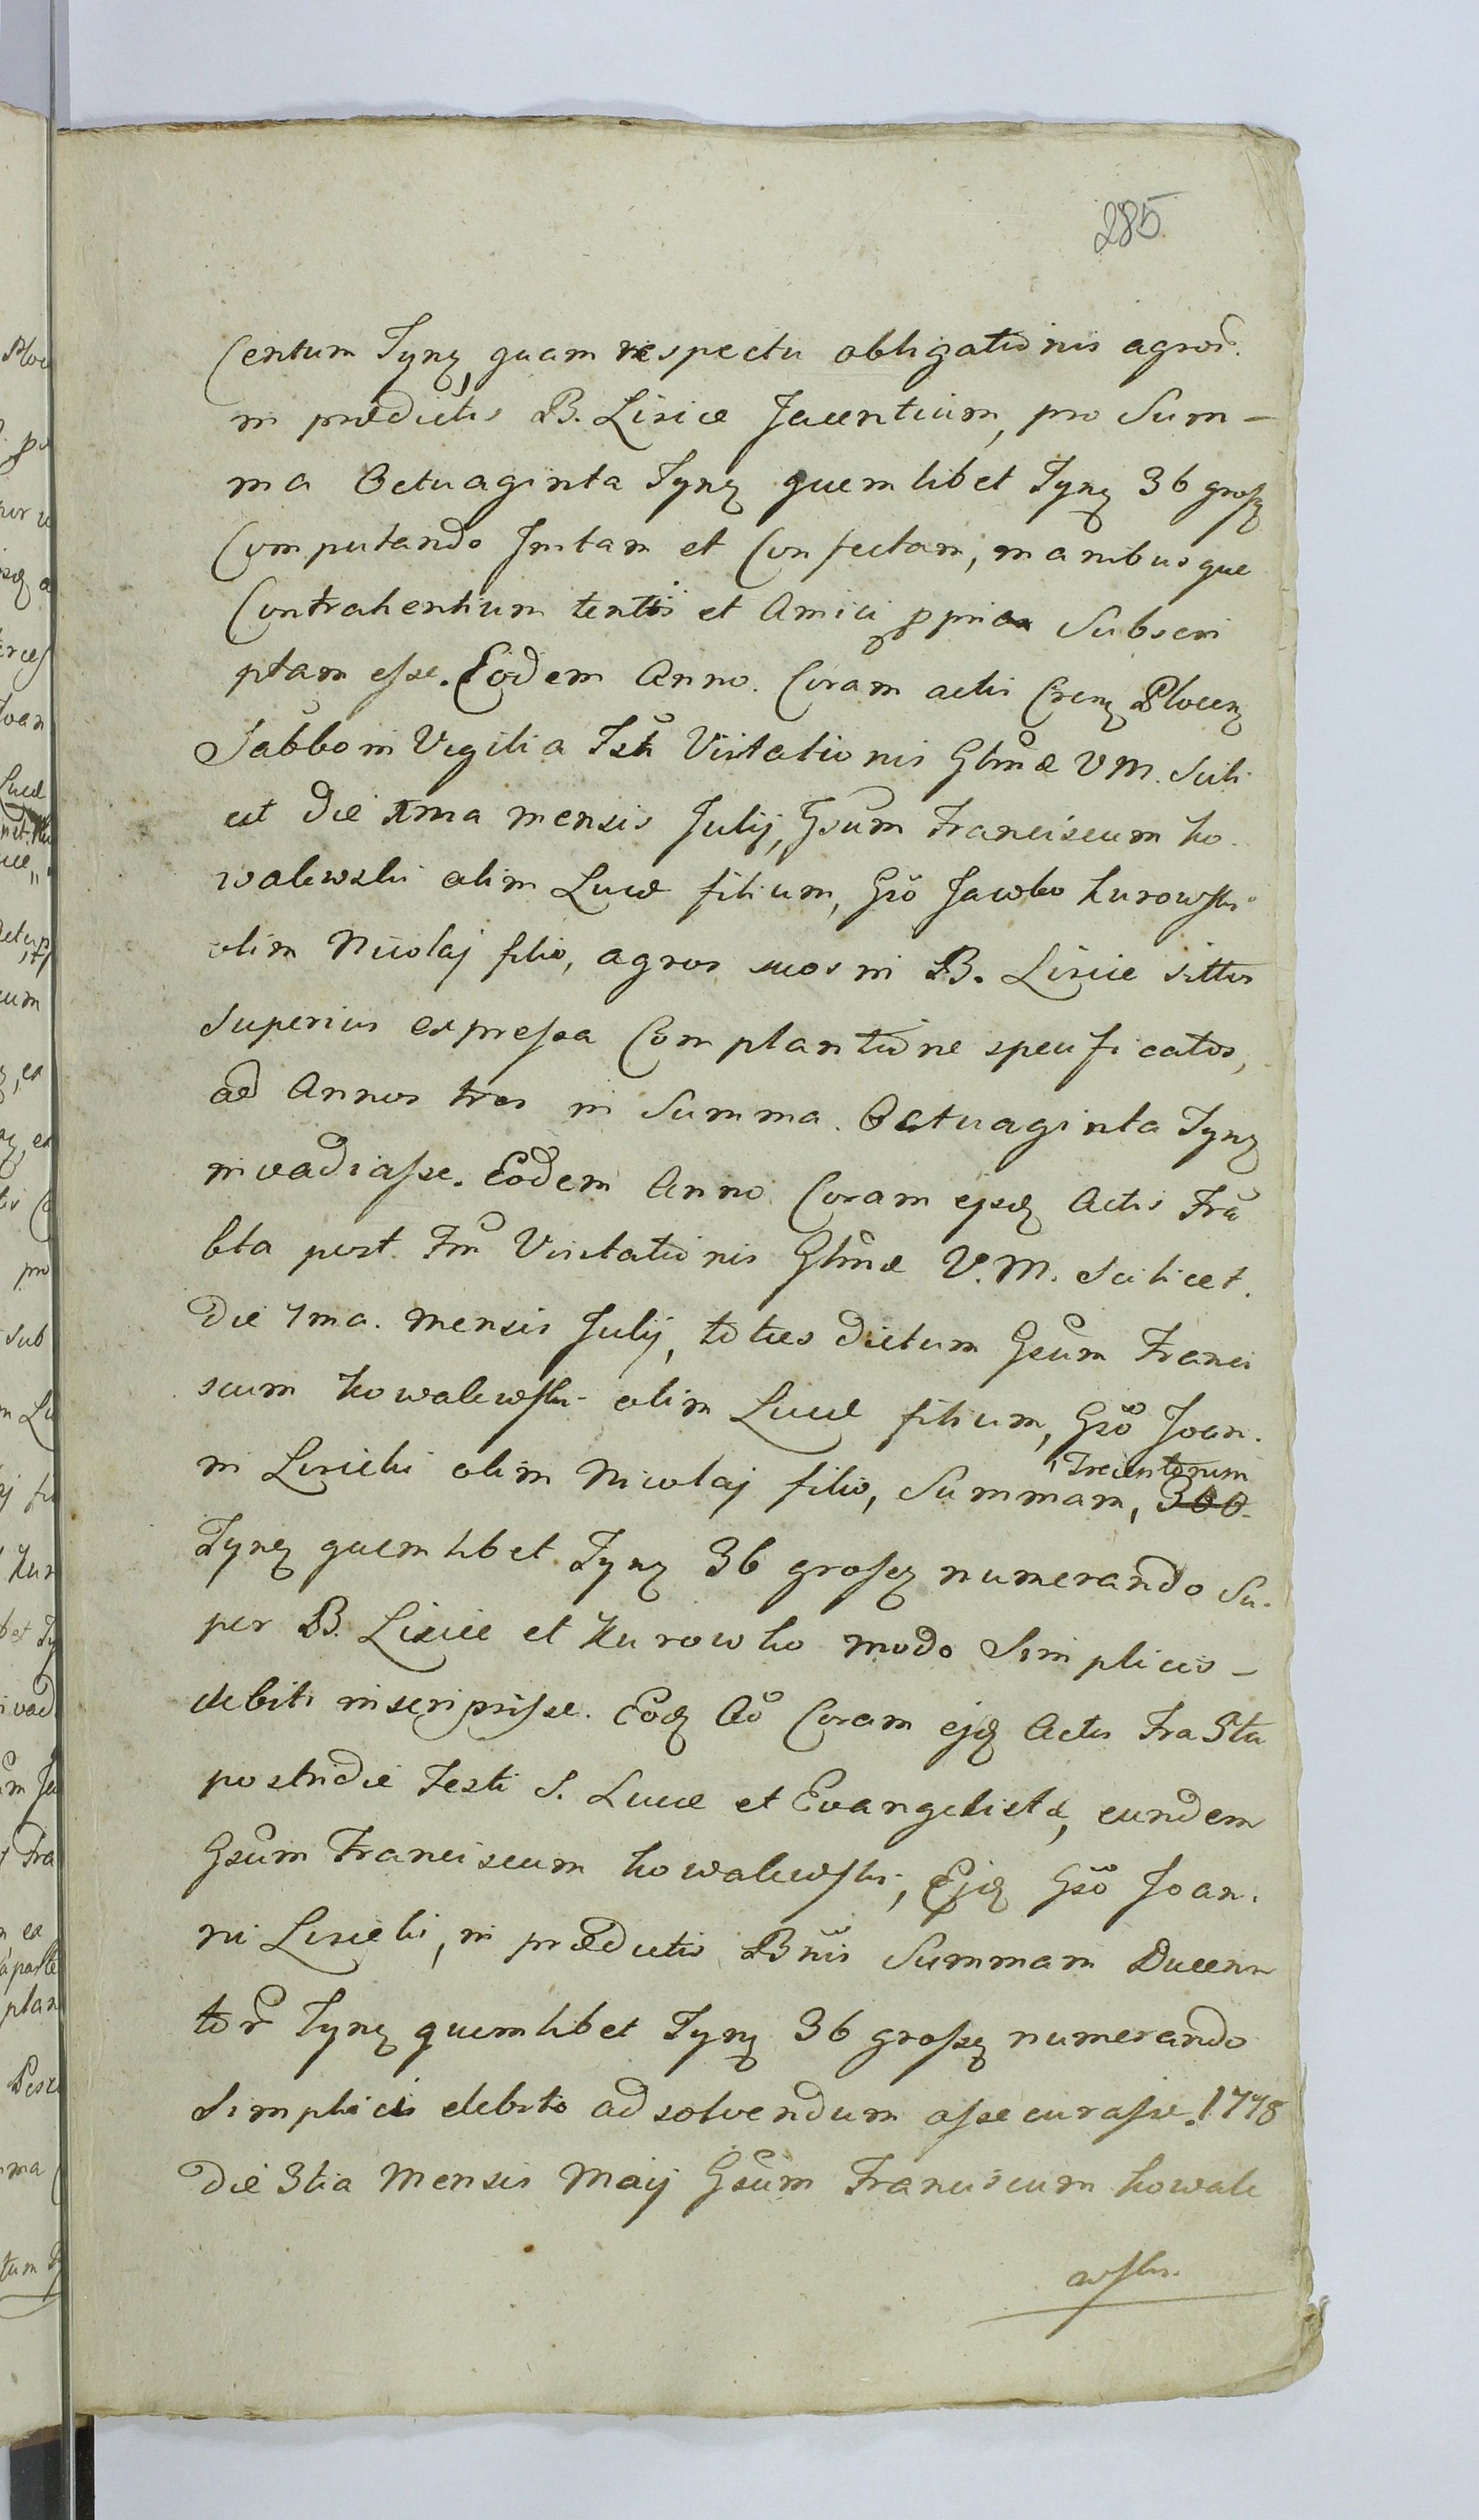 285
Centum Tynꝫ, quam respectu obligationis agror̃.
in prædictis B. Lisice Jacentium, pro Sum-
ma Octuaginta Tynꝫ quemlibet Tynꝫ 36 grossꝫ
Computando Initam et Confectam, manibusque
Contrahentium tentis et Amici Subscri
ptam esse. Eodem Anno. Coram actis Crenꝫ Plocenꝫ
Sabbo in Vigilia Fsti Visitationis Glmæ V M. Scili
cet die 1ma mensis Julij, Gsum Franciscum Ko-
walewski olim Lucæ filium, Gso Jacobo Kurowski
olim Nicolaj filio, agros suos in B. Lisice sittos
superius expressa Complantione specificatos,
ad Annos tres in Summa. Octuaginta Tynꝫ
invadiasse. Eodem Anno Coram ejsdꝫ Actis Fra
bta post Fm Visitationis Glmæ V. M. Scilicet.
Die 7ma. mensis Julij, toties dictum Gsum Franci
scum Kowalewski olim Lucæ filium, Gso Joan-
ni Lisicki olim Nicolaj filio, Summam, 300. Trecentorum
Tynꝫ quemlibet Tynꝫ 36 grossꝫ numerando Su-
per B. Lisice et Kurowko modo Simplicis-
debiti inscripsisse. Eodꝫ Ao Coram ejdꝫ Actis Fra 5ta
postridie Festi S. Lucæ et Evangelistæ, eundem
Gsum Franciscum Kowalewski, Ejdꝫ Gso Joan-
ni Lisicki, in prædictis Bnis Summam Ducen
tor̃ Tynꝫ quemlibet Tynꝫ 36 grossꝫ numerando
Simplicis debito ad solvendum assecurasse. 1748
Die 3tia Mensis Maij Gsum Franciscum Kowale
wski.